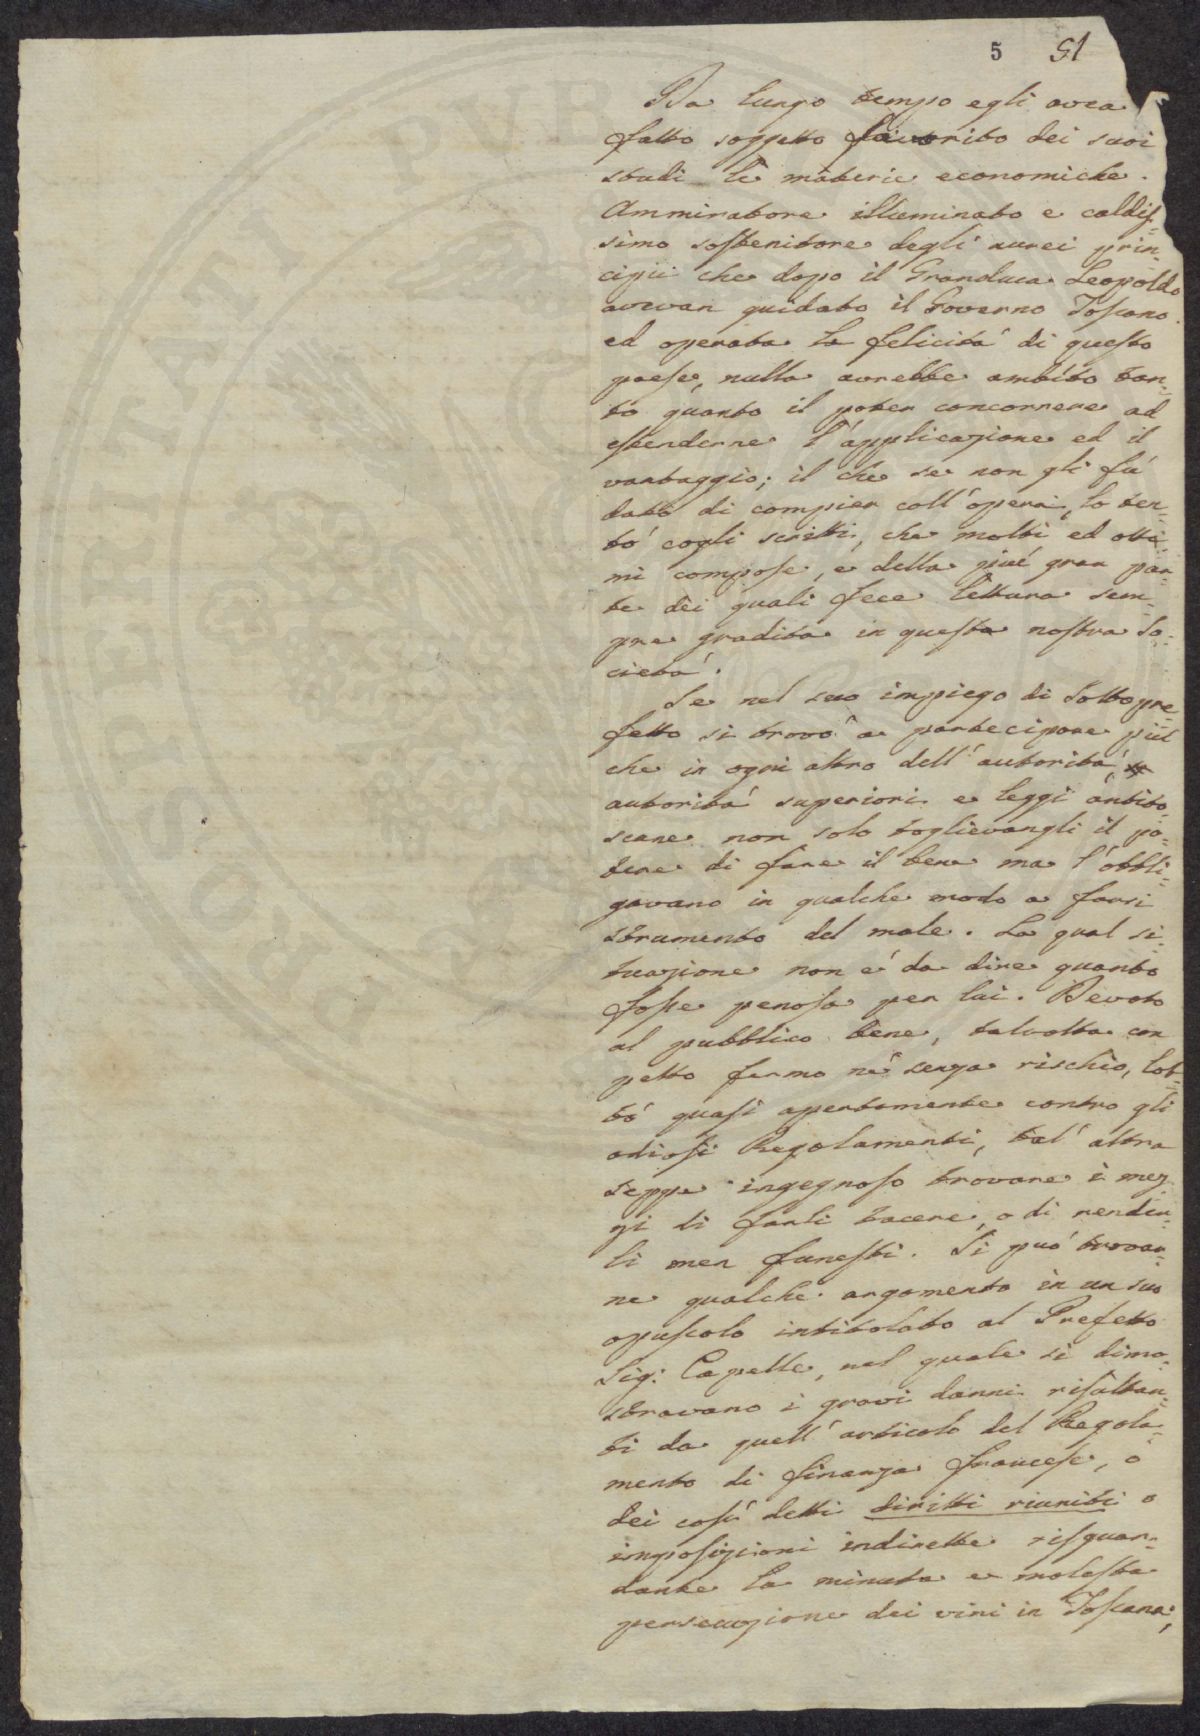 5 51
Da lungo tempo egli avea
fatto soggetto favorito dei suoi
studi le materie economiche.
Ammiratore illuminato e caldis=
simo sostenitore degli aurei prin=
cipii che dopo il Granduca Leopoldo
avevan guidato il Governo Toscano
ed operata la felicità di questo
paese, nulla avrebbe ambito tan=
to quanto il poter concorrere ad
estenderne l'applicazione ed il
vantaggio; il che se non gli fù
dato di compier coll'opera, lo ten=
tò cogli scritti, che molti ed otti=
mi compose, e della più gran par=
te dei quali fece lettura sem=
pre gradita in questa nostra So=
cietà.
Se nel suo impiego di Sottopre
fetto si trovò a partecipare più
che in ogni altro dell'autorità,
autorità superiori e leggi antito=
scane non solo toglievangli il po=
tere di fare il bene ma l'obbli=
gavano in qualche modo a farsi
strumento del male. La qual si=
tuazione non è da dire quanto
fosse penosa per lui. Devoto
al pubblico bene, talvolta con
petto fermo nè senza rischio, lot=
tò quasi apertamente contro gli
odiosi Regolamenti, tal'altra
seppe ingegnoso trovare i mez
zi di farli tacere, o di render=
li men funesti. Si può trovar=
ne qualche argomento in un suo
opuscolo intitolato al Prefetto
Sig: Capelle, nel quale si dimo=
stravano i gravi danni risultan=
ti da quell'articolo del Regola=
mento di finanza francese, o
dei così detti diritti riuniti o
imposizioni indirette risguar=
dante la minuta e molesta
persecuzione dei vini in Toscana;